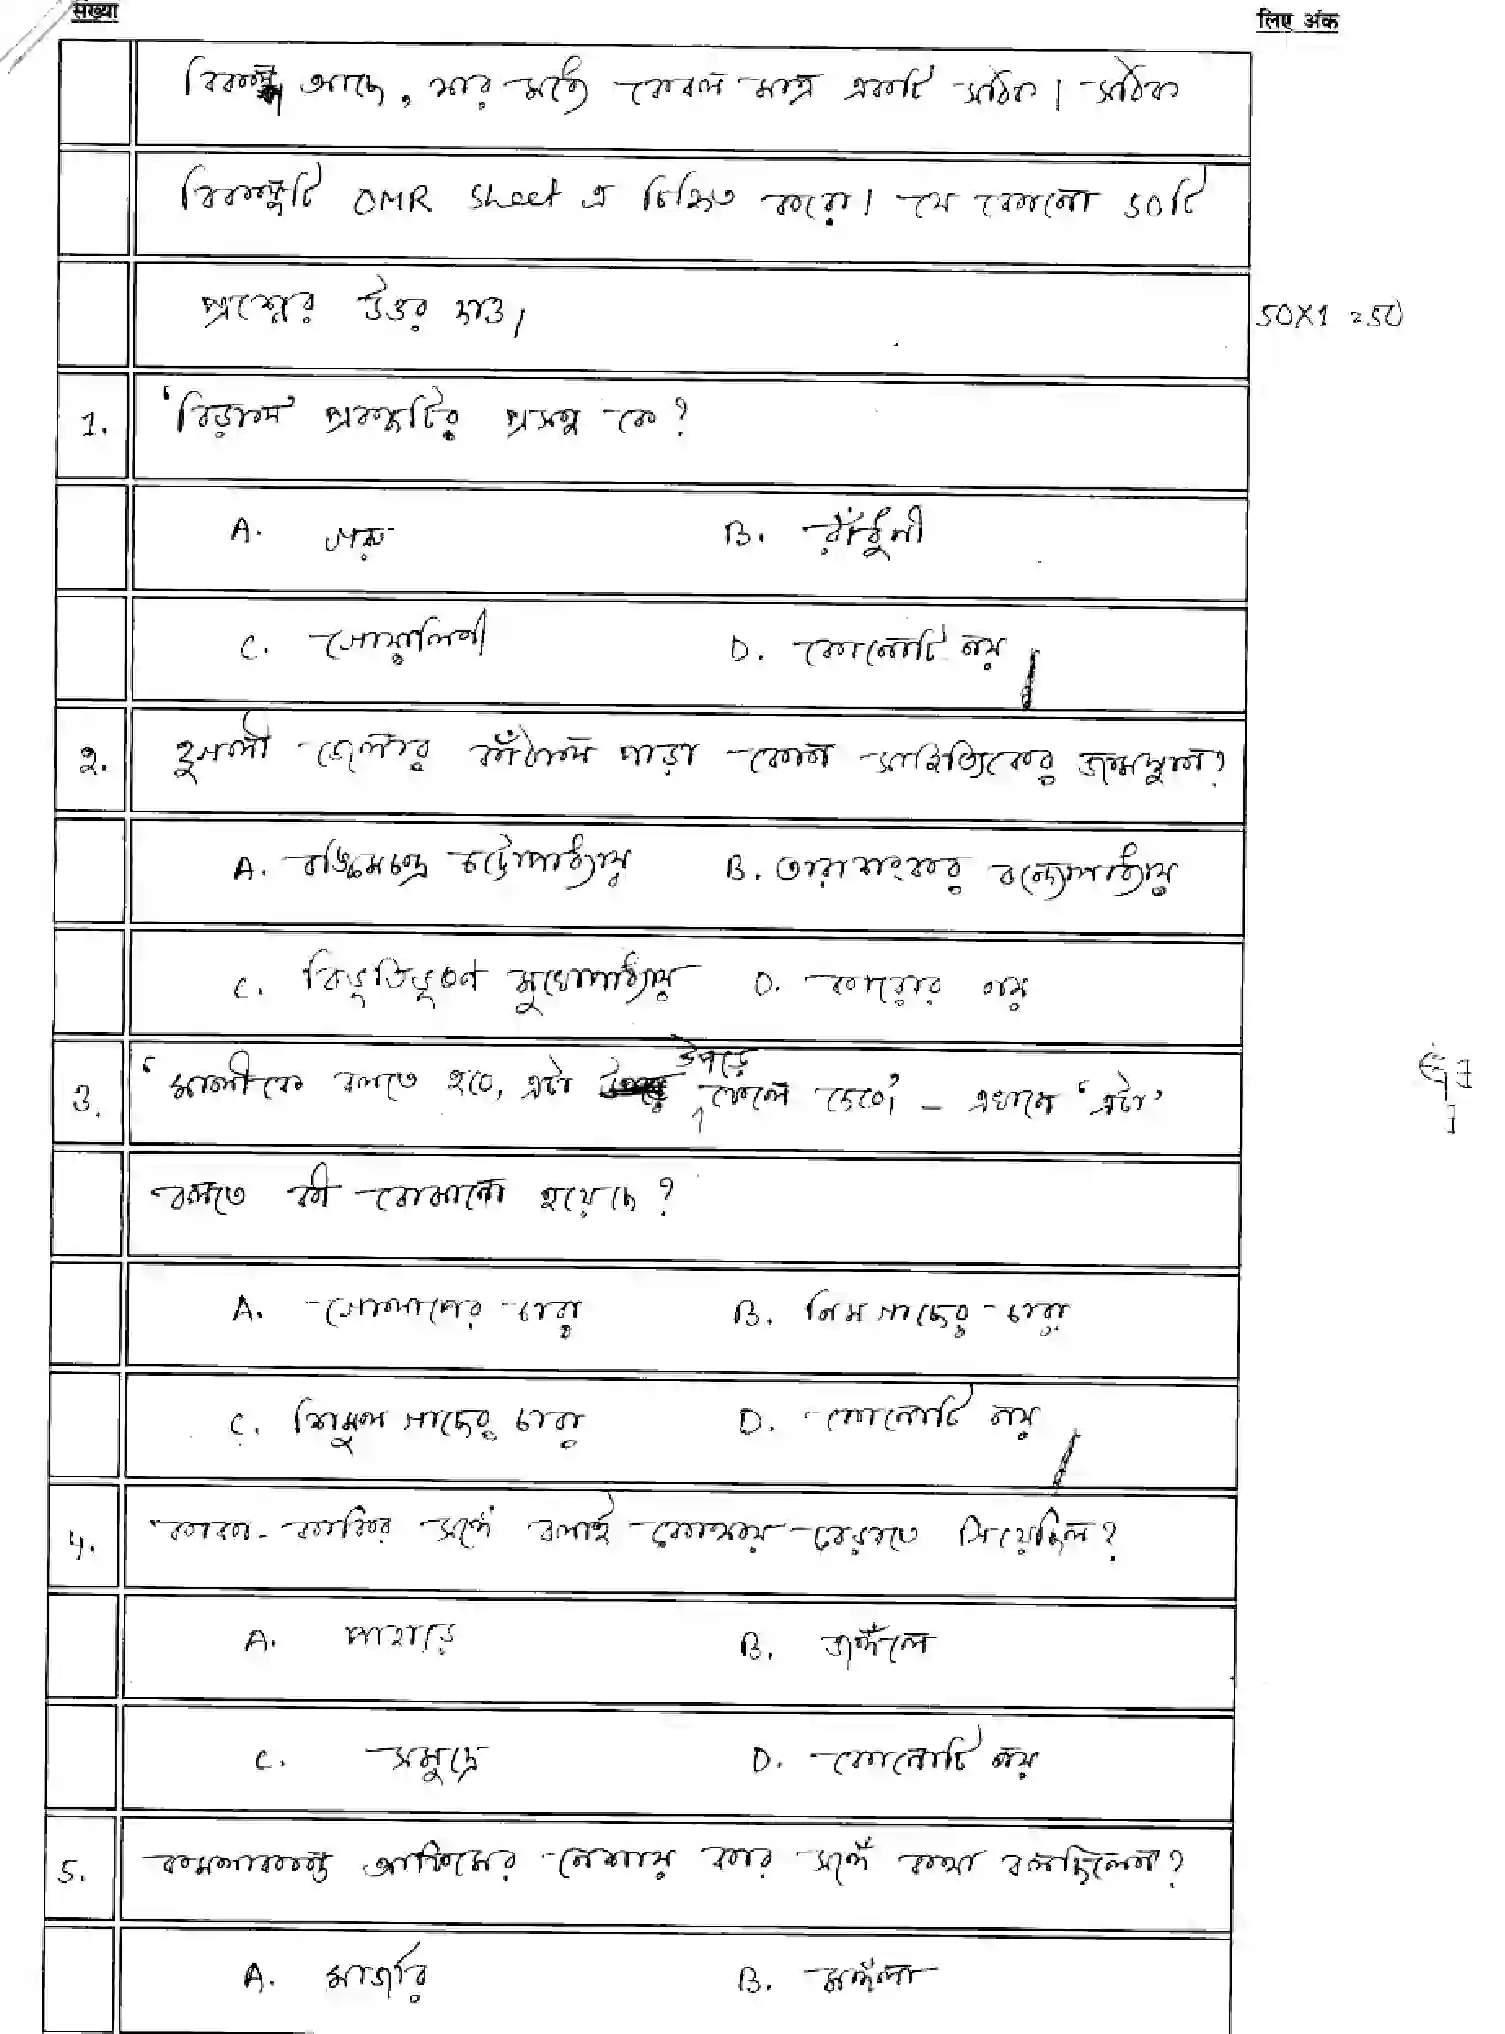 संख्या
लिए अंक
বিকল্প আছে, যার মধ্যে কেবল মাত্র একটি সঠিক। সঠিক
বিকল্পটি OMR Sheet এ চিহ্নিত করো। যে কোনো 50টি
প্রশ্নের উত্তর দাও। 50X1 = 50
1. 'বিড়াল' প্রবন্ধটির প্রসন্ন কে?
A. গরু B. রাঁধুনী
C. গোয়ালিনী D. কোনোটি নয়
2. হুগলী জেলার কাঁঠাল পাড়া কোন সাহিত্যিকের জন্মস্থান?
A. বঙ্কিমচন্দ্র চট্টোপাধ্যায় B. তারাশংকর বন্দ্যোপাধ্যায়
C. বিভূতিভূষণ মুখোপাধ্যায় D. কারোর নয়
3. 'মালীকে বলতে হবে, এটা উপড়ে ফেলে দেবে' – এখানে 'এটা'
বলতে কী বোঝানো হয়েছে?
A. গোলাপের চারা B. নিম গাছের চারা
C. শিমুল গাছের চারা D. কোনোটি নয়
4. কাকা-কাকির সঙ্গে বলাই কোথায় বেড়াতে গিয়েছিল?
A. পাহাড়ে B. জঙ্গলে
C. সমুদ্রে D. কোনোটি নয়
5. কমলাকান্ত আফিমের নেশায় কার সঙ্গে কথা বলছিলেন?
A. মার্জার B. মঙ্গলা